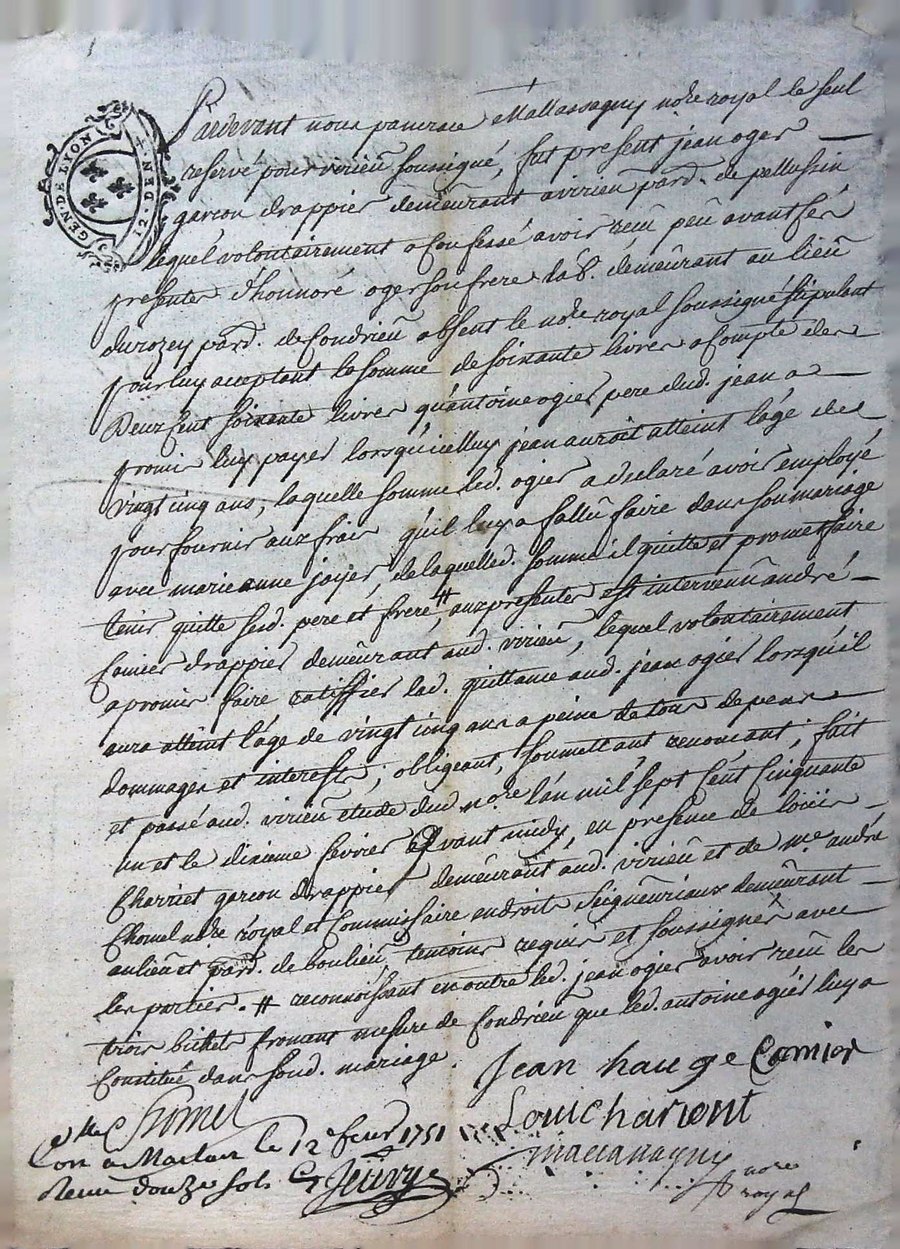 GEN. DE LYON
12 DEN
Pardevant nous pancrace Mallassagny no.re royal le seul
reservé pour virieu soussigné, fut present jean oger
garcon drappier demeurant a virieu par. de pellussin
lequel volontairement a confessé avoir receu peu avant ses
presentes d'honnoré oger son frere lad. demeurant au lieu
du rozey par. de Condrieu absent le no.re royal soussigné stipulant
pour luy acceptant la somme de soixante livres a compte des
Deux Cent soixante livres qu'antoine ogier pere dud. jean a
promis luy payer lorsqu'icelluy jean auroit atteint l'age des
vingt cinq ans, laquelle somme led. ogier a declaré avoir employé
pour fournir aux frais qu'il luy a fallu faire dans son mariage
avec marie anne jayer, de laquelled. somme il quitte et promet faire
tenir quitte sesd. pere et frere #, aux presentes est intervenu andré
Comier drappier demeurant aud. virieu, lequel volontairement
a promis faire ratiffier lad. quittance aud. jean ogier lorsqu'il
aura atteint l'age de vingt cinq ans a peine de tous depens
dommages et interests, obligeant, soumettant renoncant, fait
et passé aud. virieu etude dud no.re l'an mil sept Cent Cinquante
un et le dixieme fevrier avant midy, en presence de loüis
Charriet garcon drappier demeurant aud. virieu et de me andré
Chomel no.re royal et Commissaire en droits seigneuriaux demeurant
au lieu et par. de boulieu temoins requis et soussignés avec
les parties. # reconnoissant en outre led. jean ogier avoir receu les
trois bichets froment mesure de Condrieu que led. antoine ogier luy a
Constitué dans sond. mariage.
Jean hauge Comier
Chomel
Louis Chariont
Con. a Maclas le 12e fevr 1751
mallassagny no.re royal
Receu douze sols